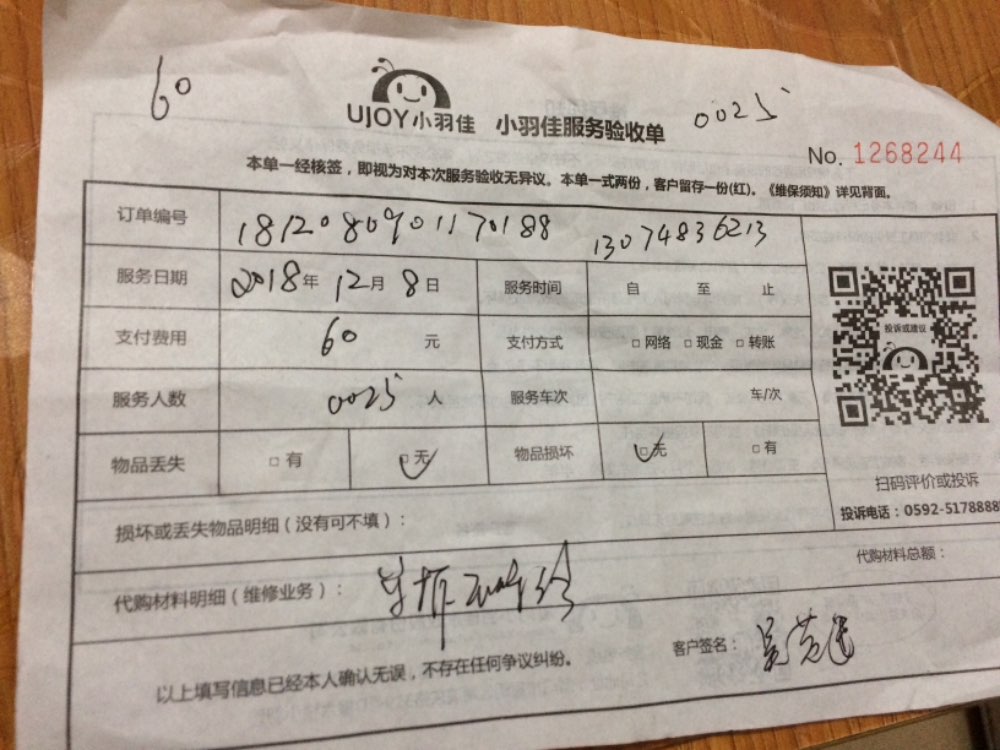 60
UJOY小羽佳 小羽佳服务验收单 0025
No. 1268244
本单一经核签，即视为对本次服务验收无异议。本单一式两份，客户留存一份(红)。《维保须知》详见背面。
订单编号 1812080901170188 13074836213
服务日期 2018年12月8日 服务时间 自 至 止
投诉或建议
支付费用 60 元 支付方式 □网络 □现金 □转账
服务人数 0025人 服务车次 车/次
物品丢失 □有 □无 物品损坏 □无 □有
扫码评价或投诉
投诉电话：0592-5178888
损坏或丢失物品明细（没有可不填）：
代购材料明细（维修业务）： 代购材料总额：
客户签名：
以上填写信息已经本人确认无误，不存在任何争议纠纷。